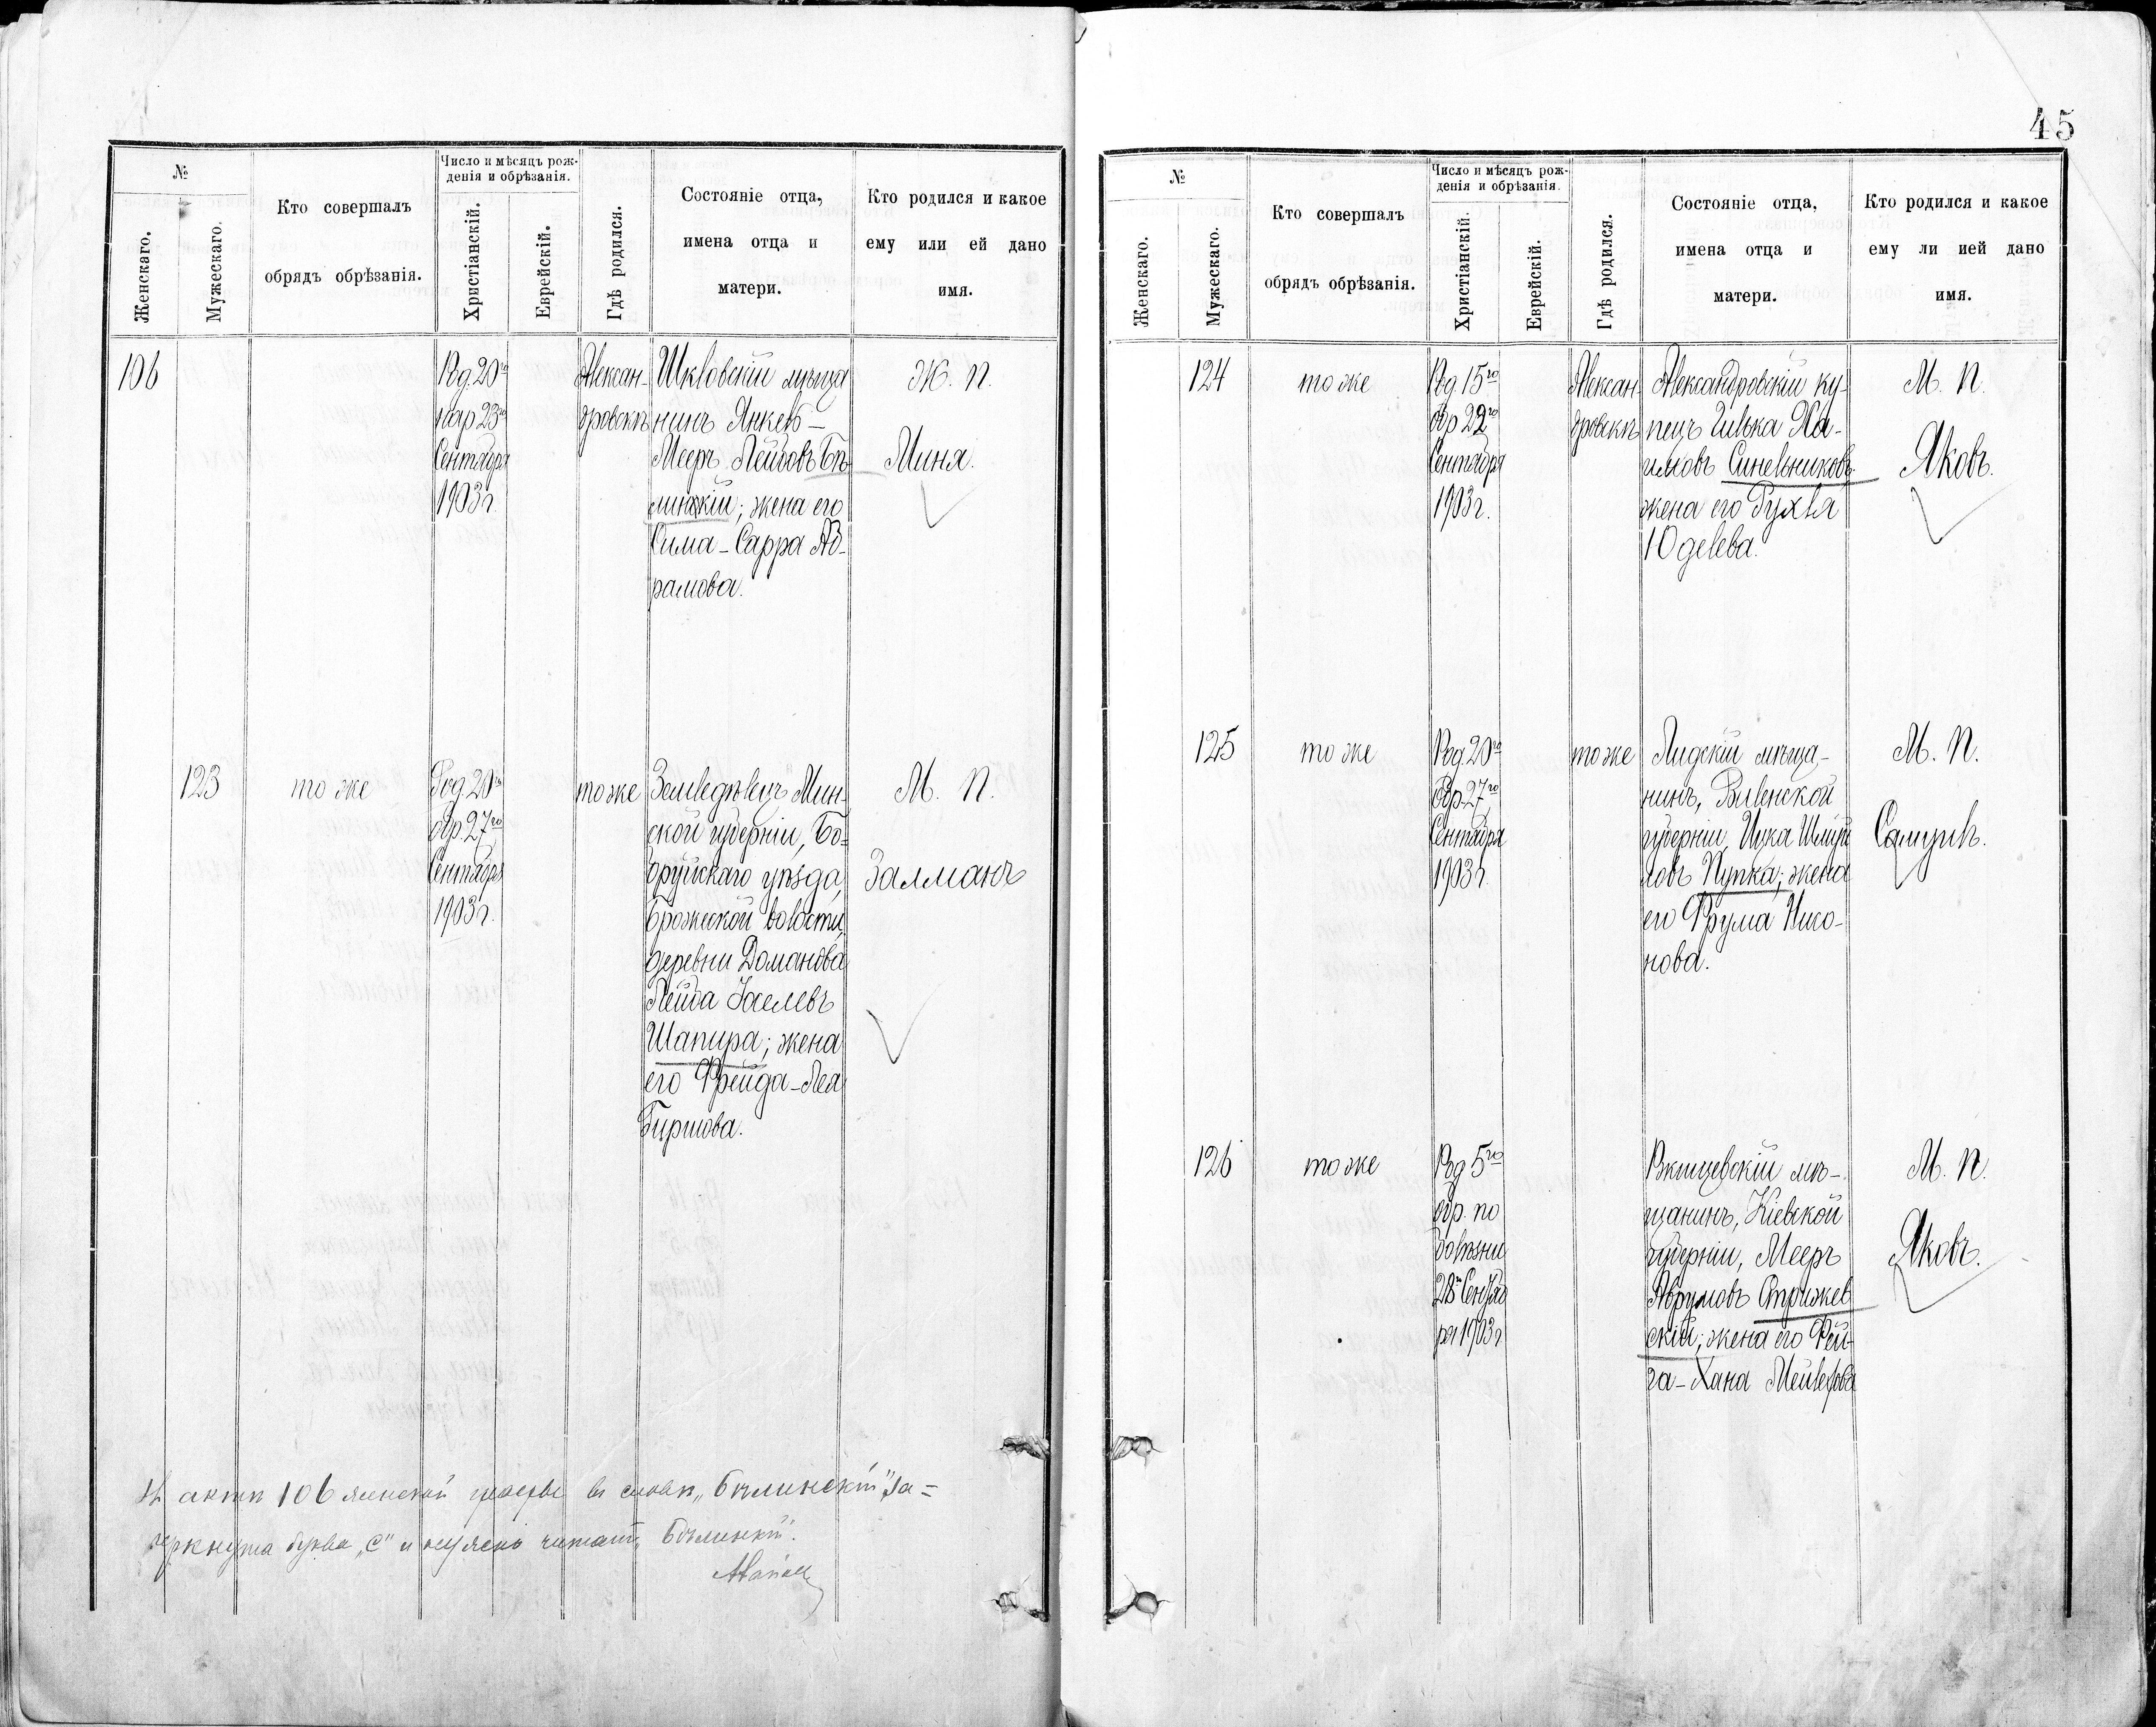 45
№
Женскаго.
Мужескаго.
Кто совершалъ
обрядъ обрѣзанія.
Число и мѣсяцъ рож-
денія и обрѣзанія.
Христіанскій.
Еврейскій.
Гдѣ родился.
Состояніе отца,
имена отца и
матери.
Кто родился и какое
ему или ей дано
имя.
106
Род. 20го
нар 23го
Сентября
1903 г.
Алексан-
дровскъ
Шкловскій мѣща
нинъ Янкель-
Мееръ Лейбовъ Бѣ
линскій; жена его
Сима-Сарра Аб-
рамова.
Ж. П.
Миня.
123
тоже
Род. 20го
обр. 27го
Сентября
1903 г.
тоже
Земледѣлецъ Мин-
ской губерніи, Бо-
бруйскаго уѣзда,
Брожской волости,
деревни Доманова
Лейба
Шапира; жена
его Фрейда-Леа
Гиршова.
М. П.
Залманъ
Въ актѣ 106 женской въ словѣ „Бѣлинскій" за=
черкнута буква „с" и читать „Бѣлинкій".
№
Женскаго.
Мужескаго.
Кто совершалъ
обрядъ обрѣзанія.
Число и мѣсяцъ рож-
денія и обрѣзанія.
Христіанскій.
Еврейскій.
Гдѣ родился.
Состояніе отца,
имена отца и
матери.
Кто родился и какое
ему ли ией дано
имя.
124
тоже
Род 15го
обр 22го
Сентября
1903 г.
Алексан
дровскъ
Александровскій ку-
пецъ Гилька Ха-
имовъ Синельниковъ
жена его Рухля
Юделева.
М. П.
Яковъ.
125
тоже
Род. 20го
Обр. 27го
Сентября
1903 г.
тоже
Лидскій мѣща-
нинъ, Виленской
губерніи, Ицка Шмуй
ловъ Пупка; жена
его Фрума Нисо-
нова.
М. П.
Самуилъ.
126
тоже
Род 5го
обр. по
болѣзни
28го Сентяб
ря 1903 г
Ржищевскій мѣ-
щанинъ, Кіевской
губерніи, Мееръ
Аврумовъ Стрижев
скій; жена его Рей-
за-Хана Мейлерова
М. П.
Яковъ.